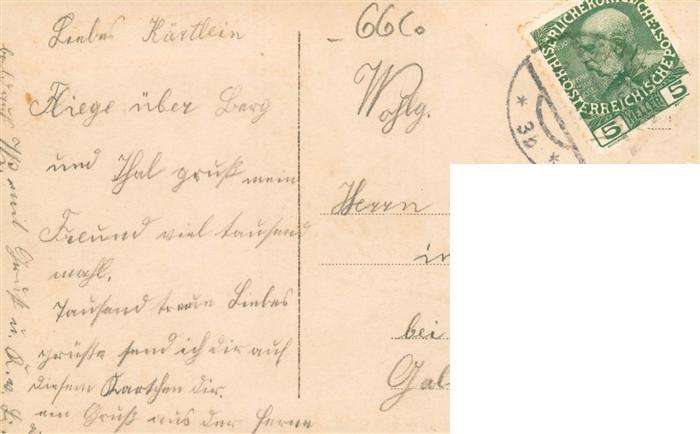 Liebes Kärtlein
Fliege über Berg
und Thal gruß mein
Freund viel tausend
mahl.
Tausend treue Liebes
grüße send ich dir auf
diesem Kartchen dir.
ein Gruß aus der Ferne
Gruß u. K. v.
66c.
Wohlg.
Herrn
in
bei
Gal
KAISERLICHE KÖNIGLICHE ÖSTERREICHISCHE POST
5 HELLER 5
* 3b *